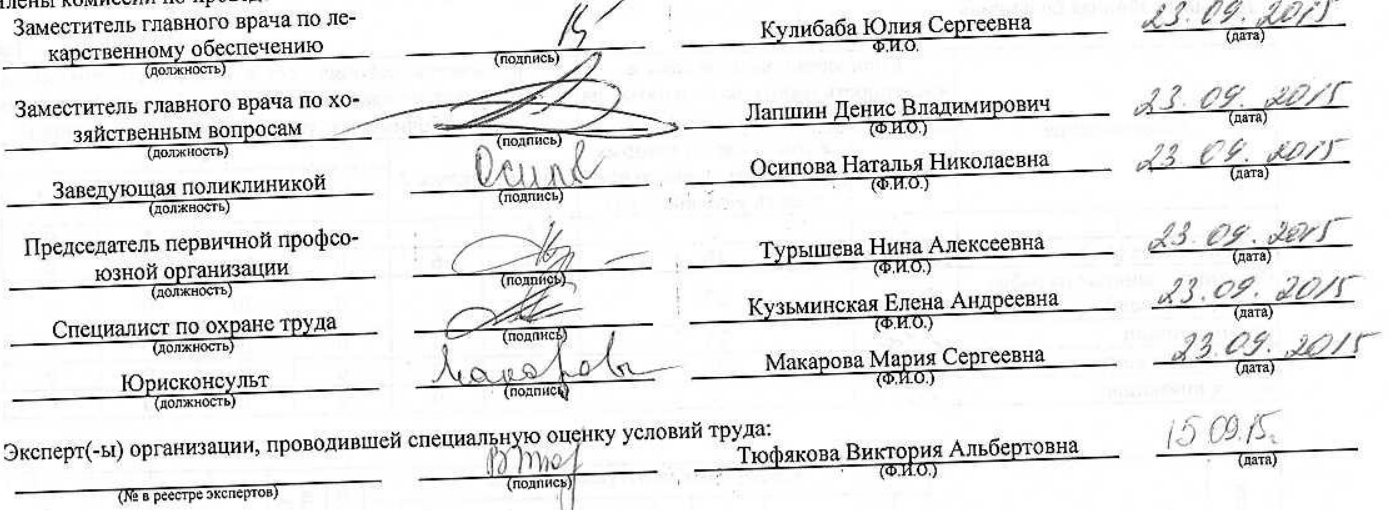 члены комиссии по
Заместитель главного врача по ле-
карственному обеспечению
(должность)
(подпись)
Кулибаба Юлия Сергеевна
Ф.И.О.
23.09.2015
(дата)
Заместитель главного врача по хо-
зяйственным вопросам
(должность)
(подпись)
Лапшин Денис Владимирович
(Ф.И.О.)
23.09.2015
(дата)
Заведующая поликлиникой
(должность)
(подпись)
Осипова Наталья Николаевна
(Ф.И.О.)
23.09.2015
(дата)
Председатель первичной профсо-
юзной организации
(должность)
(подпись)
Турышева Нина Алексеевна
(Ф.И.О.)
23.09.2015
(дата)
Специалист по охране труда
(должность)
(подпись)
Кузьминская Елена Андреевна
(Ф.И.О.)
23.09.2015
(дата)
Юрисконсульт
(должность)
(подпись)
Макарова Мария Сергеевна
(Ф.И.О.)
23.09.2015
(дата)
Эксперт(-ы) организации, проводившей специальную оценку условий труда:
(№ в реестре экспертов)
(подпись)
Тюфякова Виктория Альбертовна
(Ф.И.О.)
15.09.15г.
(дата)